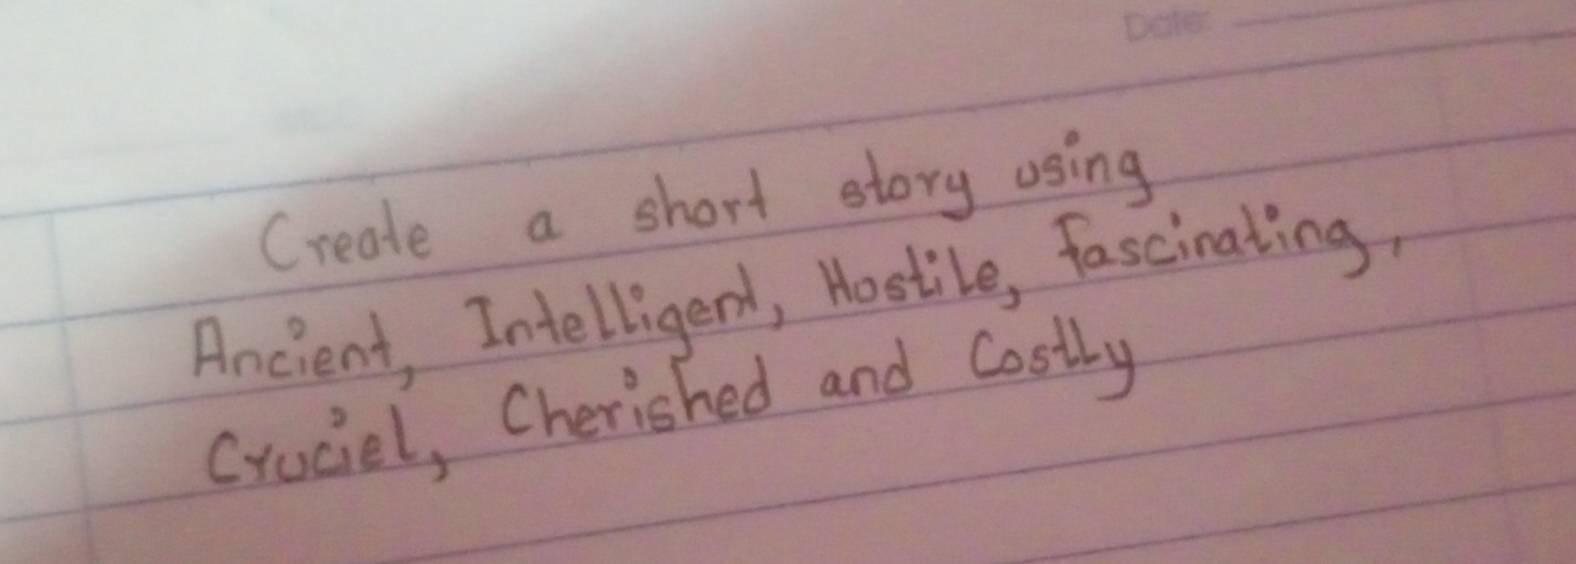 Date:
Create a short story using
Ancient, Intelligent, Hostile, fascinating,
Cruciel, Cherished and Costly